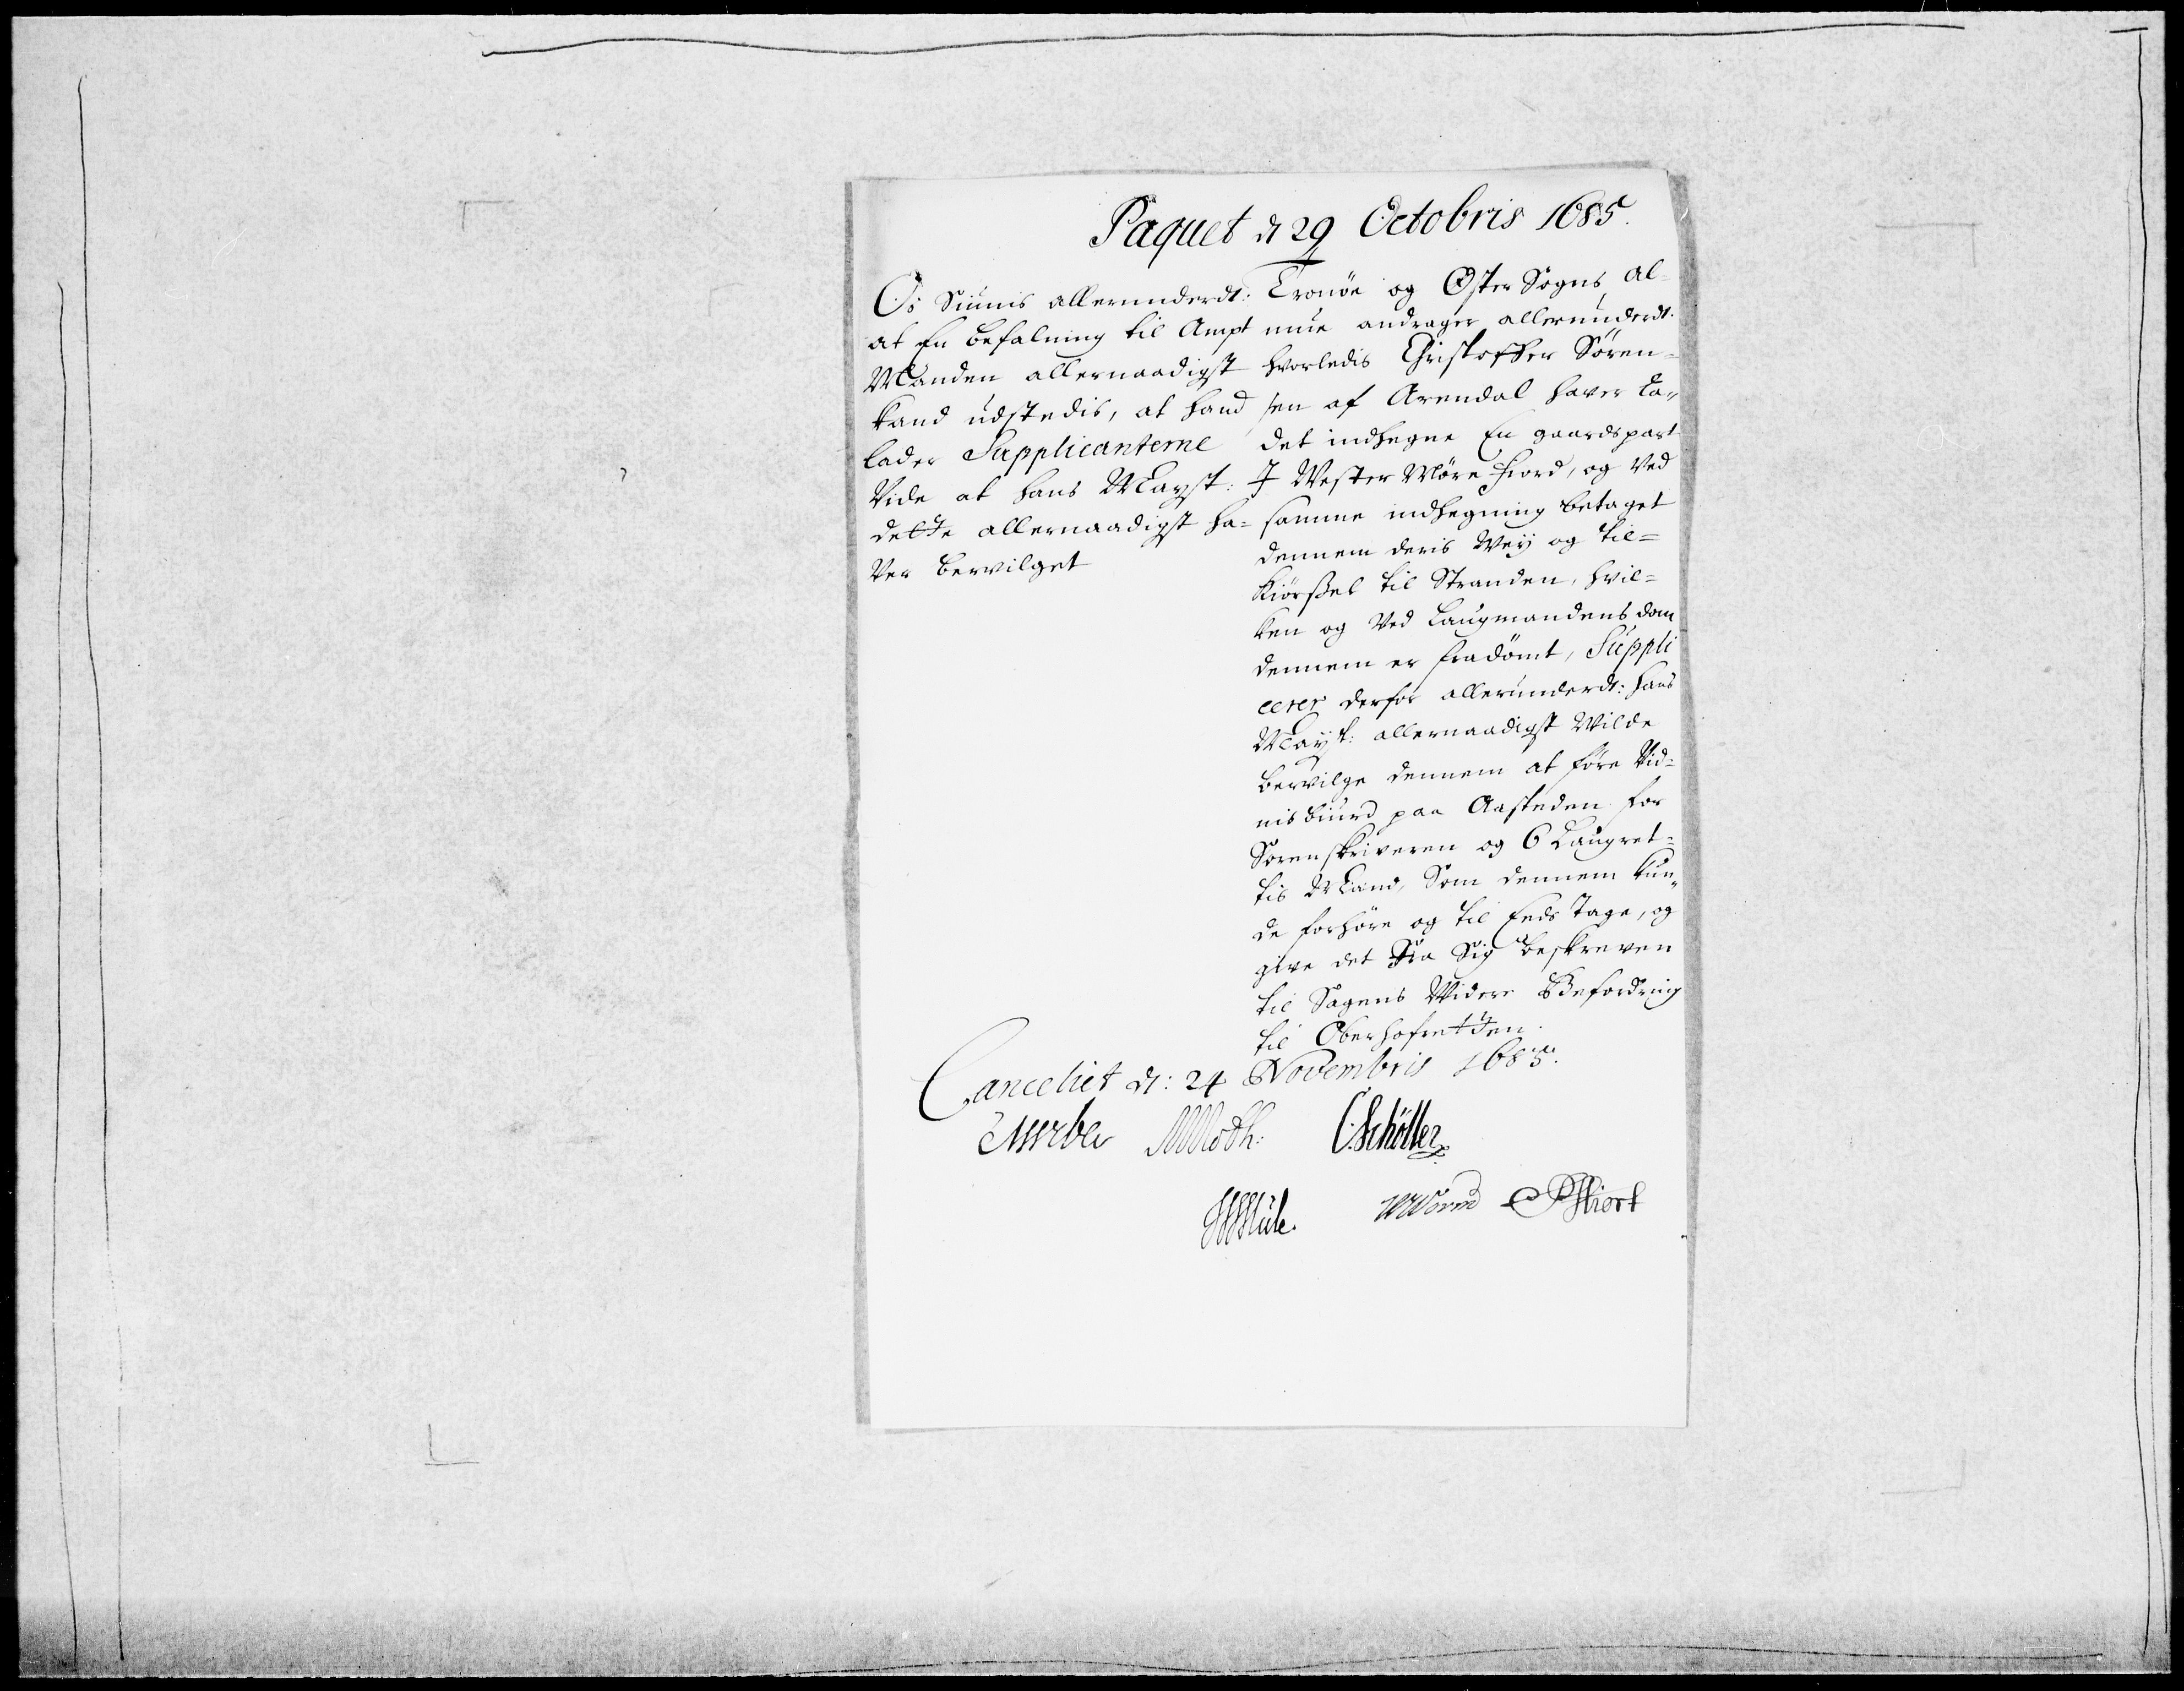 Paquet d 29 Octobris 1685.
Os Siunis allerunderdt:
at En befalning til Ampt
Manden allernaadigst
kand udstedis, at hand
lader Supplicanterne
Vide at hans Mayst:
dette allernaadigst ha=
Ver bevilget
Tromöe og Öster Sogns Al=
mue andrager allerunderdt.
hvorledis Christoffer Sören=
sen af Arendal haver la„
det indhegne En gaardspart
I Wester Möre Fiord, og Ved
samme indhegning betaget
dennem deris Wey og til=
kiörssel til Stranden, hvil=
ken og Ved Laugmandens dom
dennem er fradömt, Suppli
cerer derfor allerunderdt: hans
Mayt: allernaadigst Wilde
bevilge dennem at före Vid=
nisbiurd paa Aasteden for
Sorenskriveren og 6 Laugret=
tis Mand, Som dennem kun„
de forhöre og til Ende Tage, og
give det fra Sig beskreven
til Sagens Widere Befordring
til Oberhofretten.
Canceliet d: 24 Novembris 1685.
MMoth: C. Schöller
HMule. WWorm PHiort